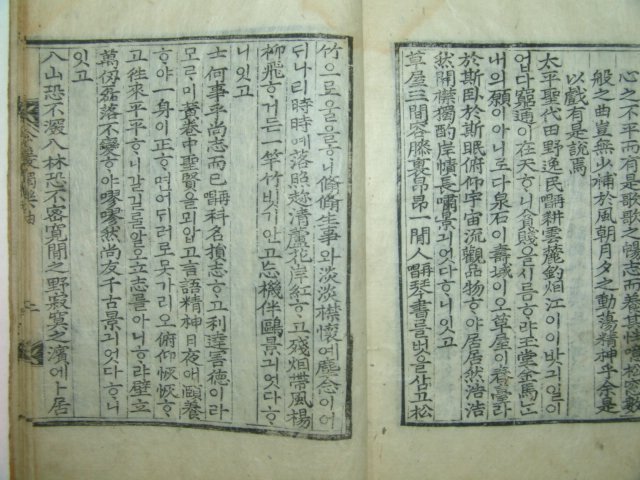 心之不平而有是歌歌之暢志而蕩其性噫松窓數
般之曲豈無少補於風朝月夕之動蕩精神乎余是
以戱有是說焉
太平聖代田野逸民再唱耕雲麓釣烟江이이밧긔일이
업다窮通이在天ᄒᆞ니貧賤을시름ᄒᆞ랴玉堂金馬ᄂᆞᆫ
내의願이아니로다泉石이壽域이오草屋이春臺라
於斯臥於斯眠俯仰宇宙流觀品物ᄒᆞ야居居然浩浩
然開襟獨酌岸幘長嘯景긔엇다ᄒᆞ니잇고
草屋三間容膝裏昻昻一閒人再唱琴書를벗을삼고松
竹으로울을ᄒᆞ니翛翛生事와淡淡襟懷예塵念이어
듸나리時時예落照趁淸蘆花岸紅ᄒᆞ고殘烟帶風楊
柳飛ᄒᆞ거든一竿竹빗기안고忘機伴鷗景긔엇다ᄒᆞ
니잇고
士何事乎尙志而已再唱科名損志ᄒᆞ고利達害德이라
모ᄅᆞ미黃卷中聖賢을뫼압고言語精神日夜애頤養
ᄒᆞ야一身이正ᄒᆞ면어듸러로못가리오俯仰恢恢ᄒᆞ
고往來平平ᄒᆞ니갈길ᄅᆞᆯ알오立志를아니ᄒᆞ랴壁立
萬仞磊落不變ᄒᆞ야嘐嘐然尙友千古景긔엇다ᄒᆞ니
잇고
入山恐不深入林恐不密寬閒之野寂寞之濱에卜居